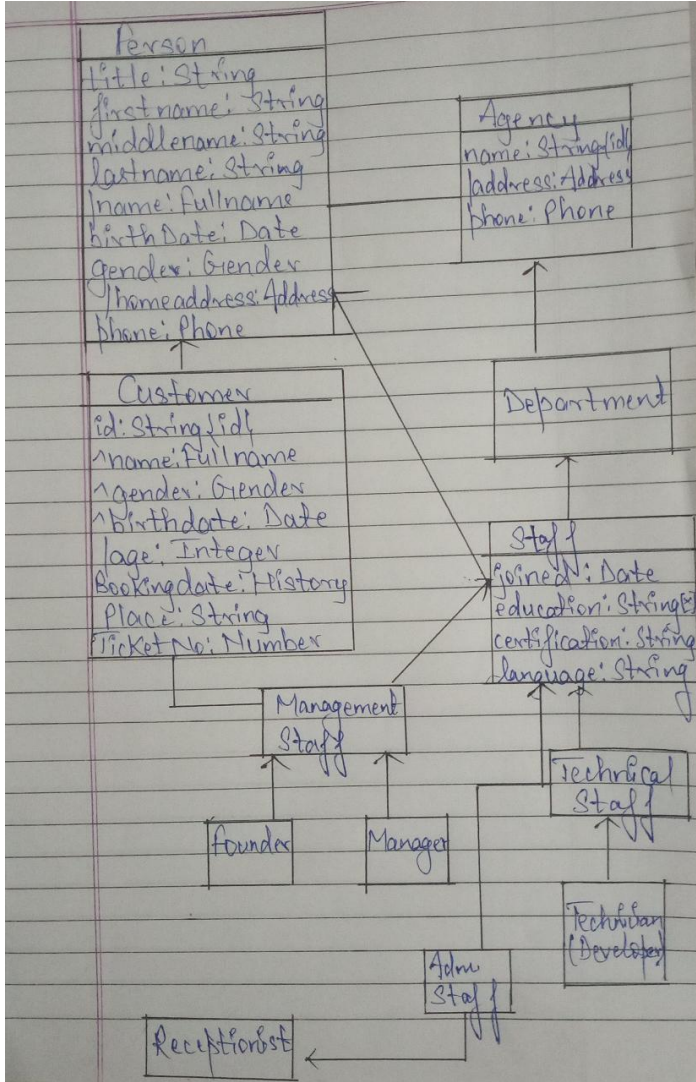 Person
title: String
firstname: String
middlename: String
lastname: String
/name: Fullname
birthDate: Date
gender: Gender
/homeaddress: Address
phone: Phone
Agency
name: String{id{
/address: Address
phone: Phone
Customer
id: String{id{
^name: Fullname
^gender: Gender
^birthdate: Date
/age: Integer
Bookingdate: History
Place: String
Ticket No: Number
Department
Staff
joined: Date
education: String[*]
certification: String
language: String
Management
Staff
founder
Manager
Technical
Staff
Technician
(Developer)
Adm
Staff
Receptionist